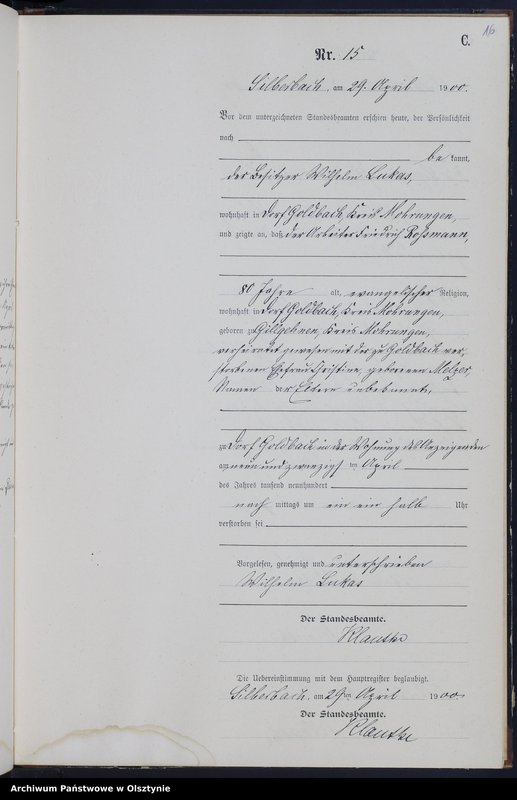 16
C.
Nr. 15
Silberbach, am 29. April 1900.
Vor dem unterzeichneten Standesbeamten erschien heute, der Persönlichkeit
nach
be kannt,
der Besitzer Wilhelm Lukas,
wohnhaft in Dorf Goldbach, Kreis Mohrungen,
und zeigte an, daß der Arbeiter Friedrich Roßmann,
80 Jahre alt, evangelischer Religion,
wohnhaft in Dorf Goldbach, Kreis Mohrungen,
geboren zu Gillgehnen, Kreis Mohrungen,
verheiratet gewesen mit der zu Goldbach ver-
storbenen Ehefrau Christine, geborenen Melzer,
Namen der Eltern unbekannt,
zu Dorf Goldbach in der Wohnung des Anzeigenden
am neun und zwanzigsten April
des Jahres tausend neunhundert
nach mittags um ein ein halb Uhr
verstorben sei
Vorgelesen, genehmigt und unterschrieben
Wilhelm Lukas
Der Standesbeamte.
Klautke
Die Uebereinstimmung mit dem Hauptregister beglaubigt.
Silberbach, am 29ten April 1900.
Der Standesbeamte.
Klautke
Archiwum Państwowe w Olsztynie